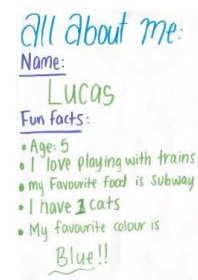 all about me:
Name:
Lucas
Fun facts:
• Age: 5
• I love playing with trains.
• my Favourite food is Subway
• I have 2 cats
• My favourite colour is
Blue!!